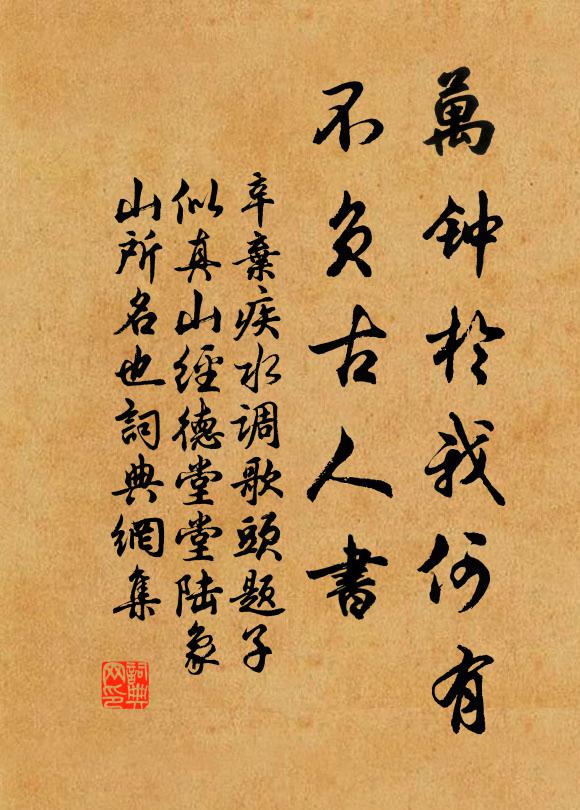 萬钟於我何有
不负古人書
辛棄疾水调歌頭題子
似真山經德堂堂陆象
山所名也詞典網集
詞典
网印